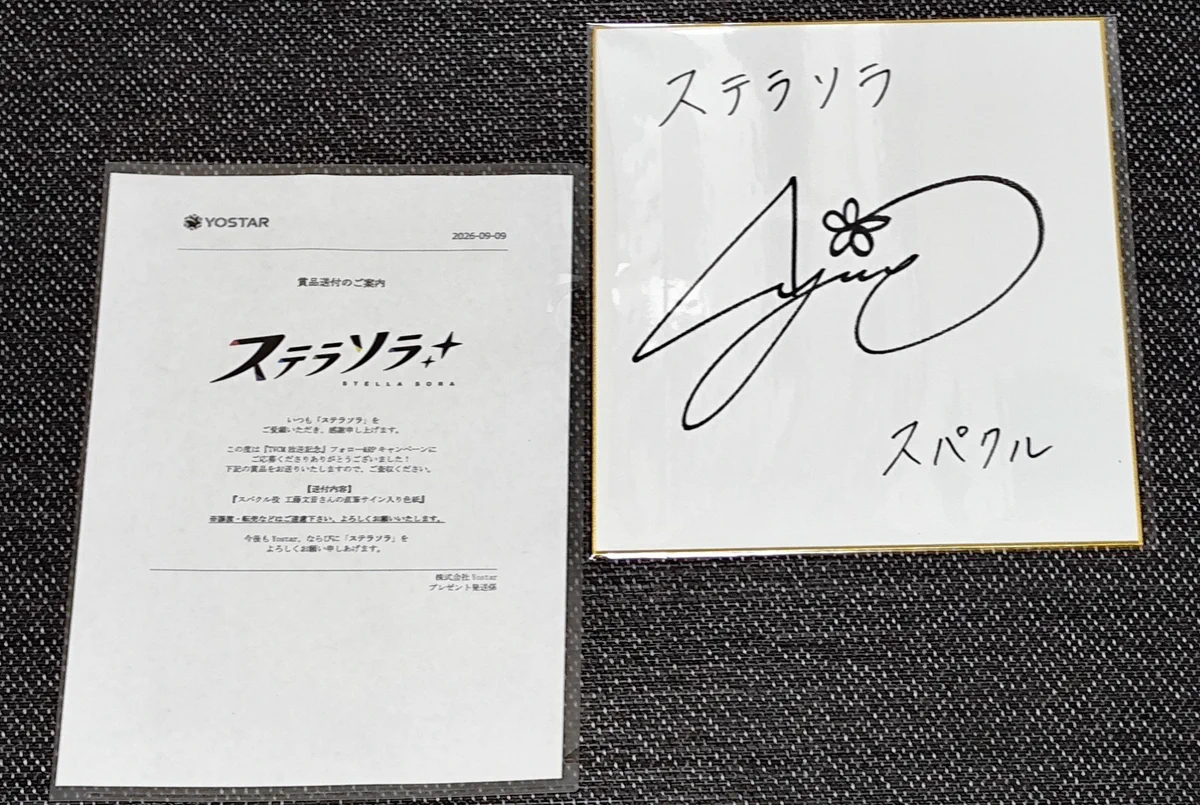 YOSTAR
2026-09-09
賞品送付のご案内
ステラソラ
STELLA SORA
いつも「ステラソラ」を
ご愛顧いただき、感謝申し上げます。
この度は『TVCM放送記念』フォロー&RPキャンペーンに
ご応募くださりありがとうございました！
下記の賞品をお送りいたしますので、ご査収ください。
【送付内容】
『スパクル役 工藤文音さんの直筆サイン入り色紙』
※譲渡・転売などはご遠慮下さい。よろしくお願いいたします。
今後もYostar、ならびに「ステラソラ」を
よろしくお願い申しあげます。
株式会社Yostar
プレゼント発送係
ステラソラ
スパクル